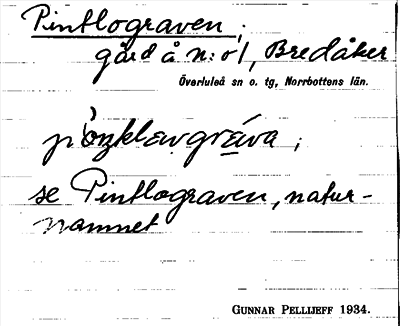 Pintlograven ;
gård å n:o 1, Bredåker
Överluleå sn o. tg, Norrbottens län.
se Pintlograven, natur-
namnet
GUNNAR PELLIJEFF 1934.